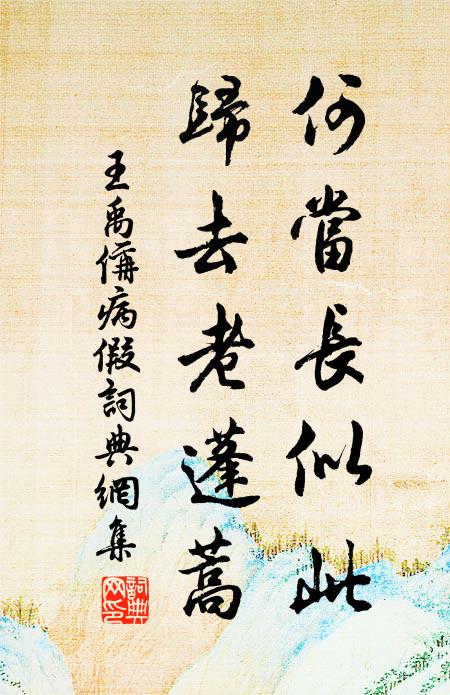 何當長似此
歸去老蓬蒿
王禹偁病假詞典網集
詞典網印